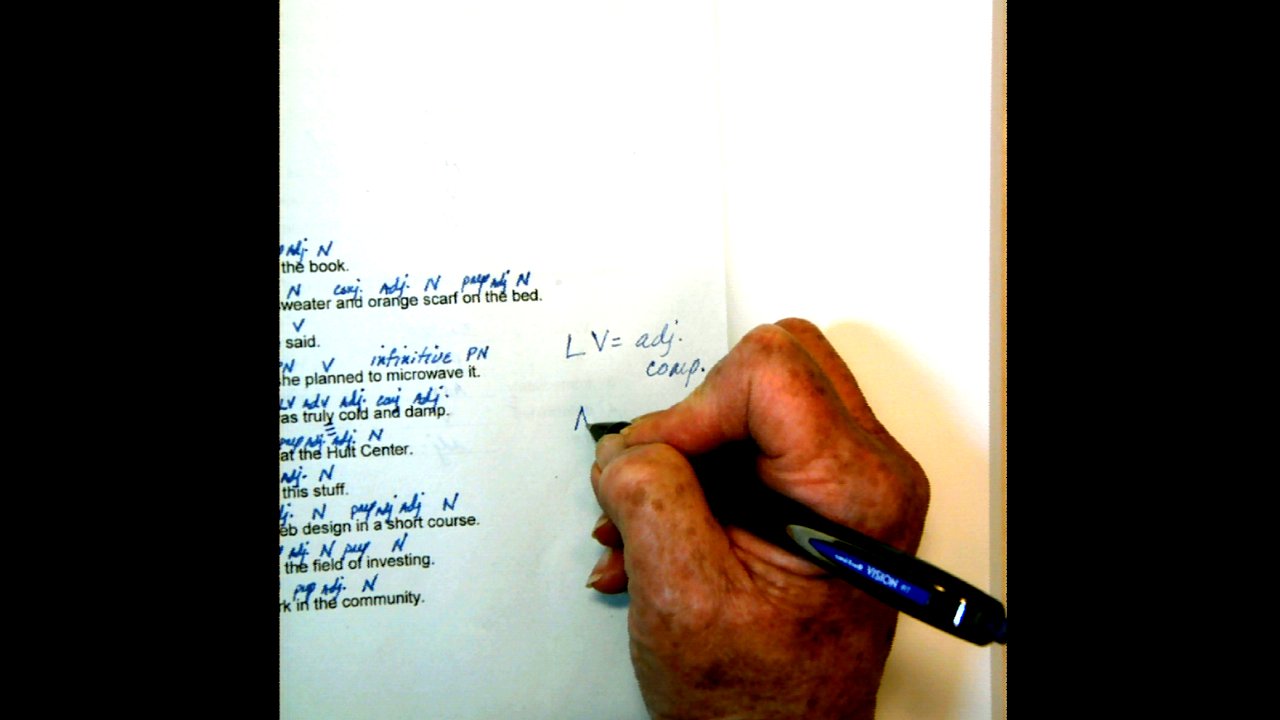 adj. N
the book.
N conj. Adj. N prep adj N
sweater and orange scarf on the bed.
V
said.
PN V infinitive PN
he planned to microwave it.
LV adv adj. conj Adj.
as truly cold and damp.
prep adj. adj. N
at the Hult Center.
adj. N
this stuff.
dj. N prep Adj adj N
eb design in a short course.
adj. N prep N
the field of investing.
prep adj. N
rk in the community.
LV = adj.
comp.
VISION